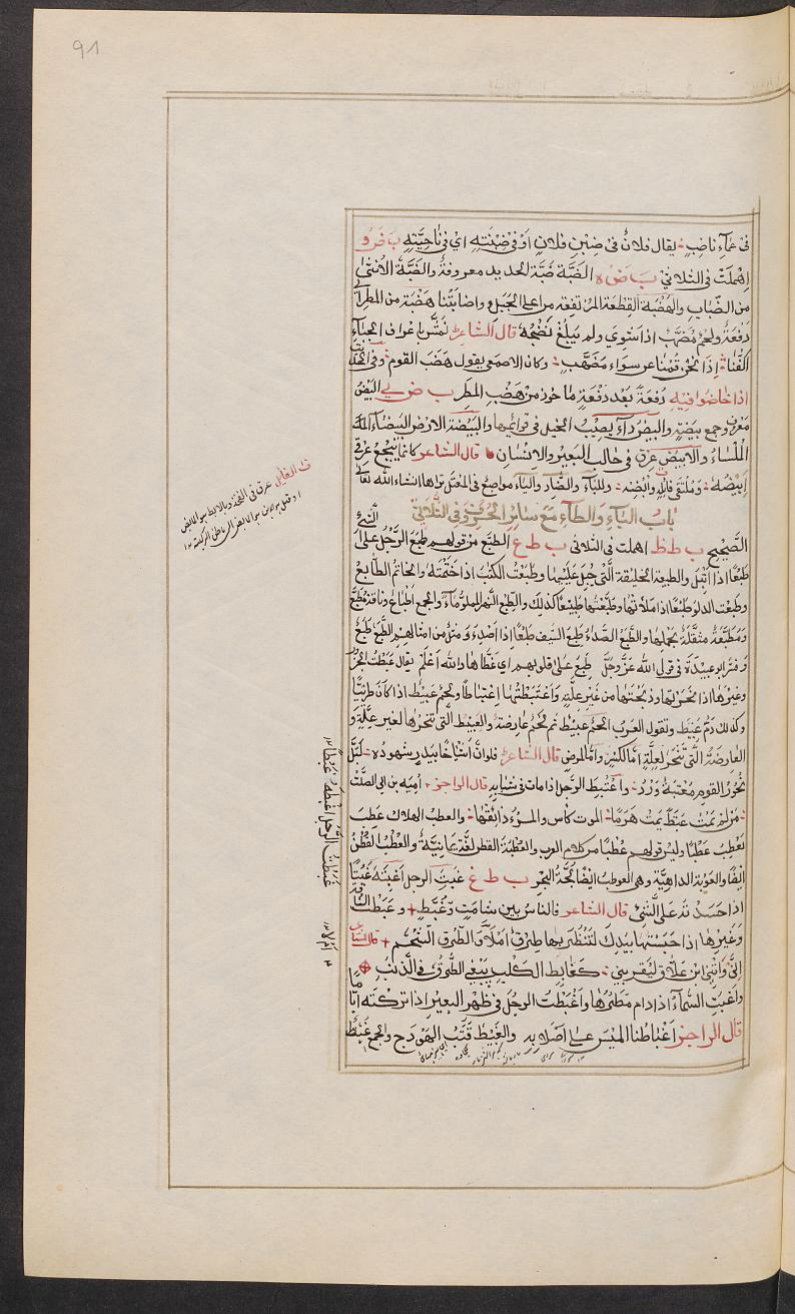 91
فى عمآء ناضب يقال فلانٌ فى ضِبن فلانٍ اَوْ فى ضِبْنَتِهِ اىْ فى نَاحِيَتِهِ ب ض و
اِهْملَتْ فى الثلاثي ب ض ه الضَبَّة ضَبَّة الحديد معروفةُ والضَبَّة الاُنثىٰ
من الضِّباب والهَضْبَة القِطعَة المرْتفِعَه من اعلى الجَبل واصابَتْنا هَضْبَة من المطر اى
دَفعَةٌ ولحمٌ مُضَهَّب اذا شوي ولم يَبلُغ نُضْجَهُ قال الشاعرُ نَمُشُّ باعْراف الجيادِ
اكُفَّنا اِذَا نَحْنُ قُمْنا عن شواءِ مُضَهَّبِ وكان الاصمعى يقول هَضَبَ القوم فى الحديث
اذا خاضوا فيهِ دُفعَةً بَعْد دفْعَةٍ مأخوذ من هَضْبِ المطرِ ب ض ي البَيْضُ
معْروف جمع بيضةٍ والبَيضُ دآءٌ يصيبُ الخيل فى قوائِمِها والبيضة الارض البَيضآء
المَلْسَاء والابيَض عِرق فى حالب البَعِير والانسان قال الشاعر كانما ييجع عِرقي
اَبيَضِهْ ومُلْتقَى فائِلِهِ واُبُضِهْ وللبآء والضّاد واليآء مواضع فى المعْتل تراها انشاء الله تعالى
باب البآء والطآء مَعَ سائر الحُروف فى الثّلاثي
الصَّحيح ب ط ظ اهملت فى الثلاثى ب ط ع الطبَع من قولهم طبَعَ الرَّجُل على الشئ
طَبْعًا اذا والطبيعة الخليقة الَّتى جُبِلَ عَليْها وطبَعْتُ الكتٰبَ اذا خَتَمْتَهُ والخاتمُ الطّابعُ
وطبَعْت الدلوَ طَبْعًا اذا مَلأتَها وطبَّعْتها طبيعًا كذلك والطِّبْعُ النّهرُ المملوُّ مآءً والجمع اَطْباعُ وناقة مُطبَّعَةٌ
ومُطَبَّعَةٌ مثقَلةٌ بحَمْلِها والطَّبَعُ الصَّدأُ طَبِعَ السَيف طَبَعًا اذا صَدِىءَ ومثل من امثالهم الطَّمَعُ طَبَعٌ
وفسَّر ابو عبيدَة فى قول الله عزَّ وجَلَّ طبِعَ على قلوبهم اى غطّاها والله اَعْلَم يقال عَبَطْتُ الجَزُورَ
وغيرَها اذا نحَرْتها وذبَحْتَها من غَير علّةٍ واعْتبَطْتُها اِعْتباطًا ولحمٌ عَبيطٌ اذا كان طريًّا
وكذلك دمٌ عَبيط وتقول العرب الحمٌ عبيطٌ ام لحمٌ عارضةٍ والعَبيط الَّتى تنحرُها لغير علّةٍ و
العارضَة الَّتى تنحَرُ لعِلَّةٍ اِمّا لكسْرٍ واِمّا لمرضٍ قال الشاعر فلوانَّ اَشْياخًا ببَدْرٍ شهودُه لَبَلَّ
نحُورَ القومِ مُعْتبَطٌ وَرْدُ واعْتُبِطَ الرَّجل اذا مات فى شبابِهِ قال الراجز اُميّه بن ابى الصلت
مَنْ لم يَمُتْ عَبْطَةً يمُتْ هَرَمًا الموت كأس والمرءُ ذائقها والعطب الهلاك عَطِبَ
يَعْطِبُ عَطَبًا وليس قولهم عُطْبًا من كلام العرب والعُطْبَةُ القطن لغَة يمانيَّة والعُطْبُ القُطْنُ
ايضًا والعَوْبَطُ الداهيَة وهى العَوطبُ ايضًا لجَّةُ البَحرِ ب ط غ غَبَطْتُ الرجلَ اَغْبِطُهُ غَبْطًا
اذا حَسَدْتَهُ على الشئ قال الشاعر فالناس بين شامتٍ وغُبَّطِ وغَبَطْتُ الشّاة
وغيرَها اذا حَبَسْتها بيدكَ لتنْظُرَ بها طِرْقٌ امْ لا والطِّرْقُ الشَّحْمُ قال الشاعر
اِنّى واَتْيِى ابنَ عَلّاقٍ ليَقرِيَنى كغابِط الكَلْبِ يَبْغى الطِّرْقَ فى الذَّنَبِ
واَغْبَطَتِ السَّمآءُ اذا دام مَطَرُها واَغْبَطْتُ الرحْلَ فى ظهرِ البعيرِ اذا تركته ايّامًا
قال الراجز اِغْباطُنا المَيْسَ على اَصْلابِهِ والغَبيطُ قَتَبُ الهَوْدَج والجمع غُبُطٌ
عرق فى الفخذ
غَبَطْتُ الرَّجُلَ اَغْبِطُهُ غَبْطًا
اَمْ لا